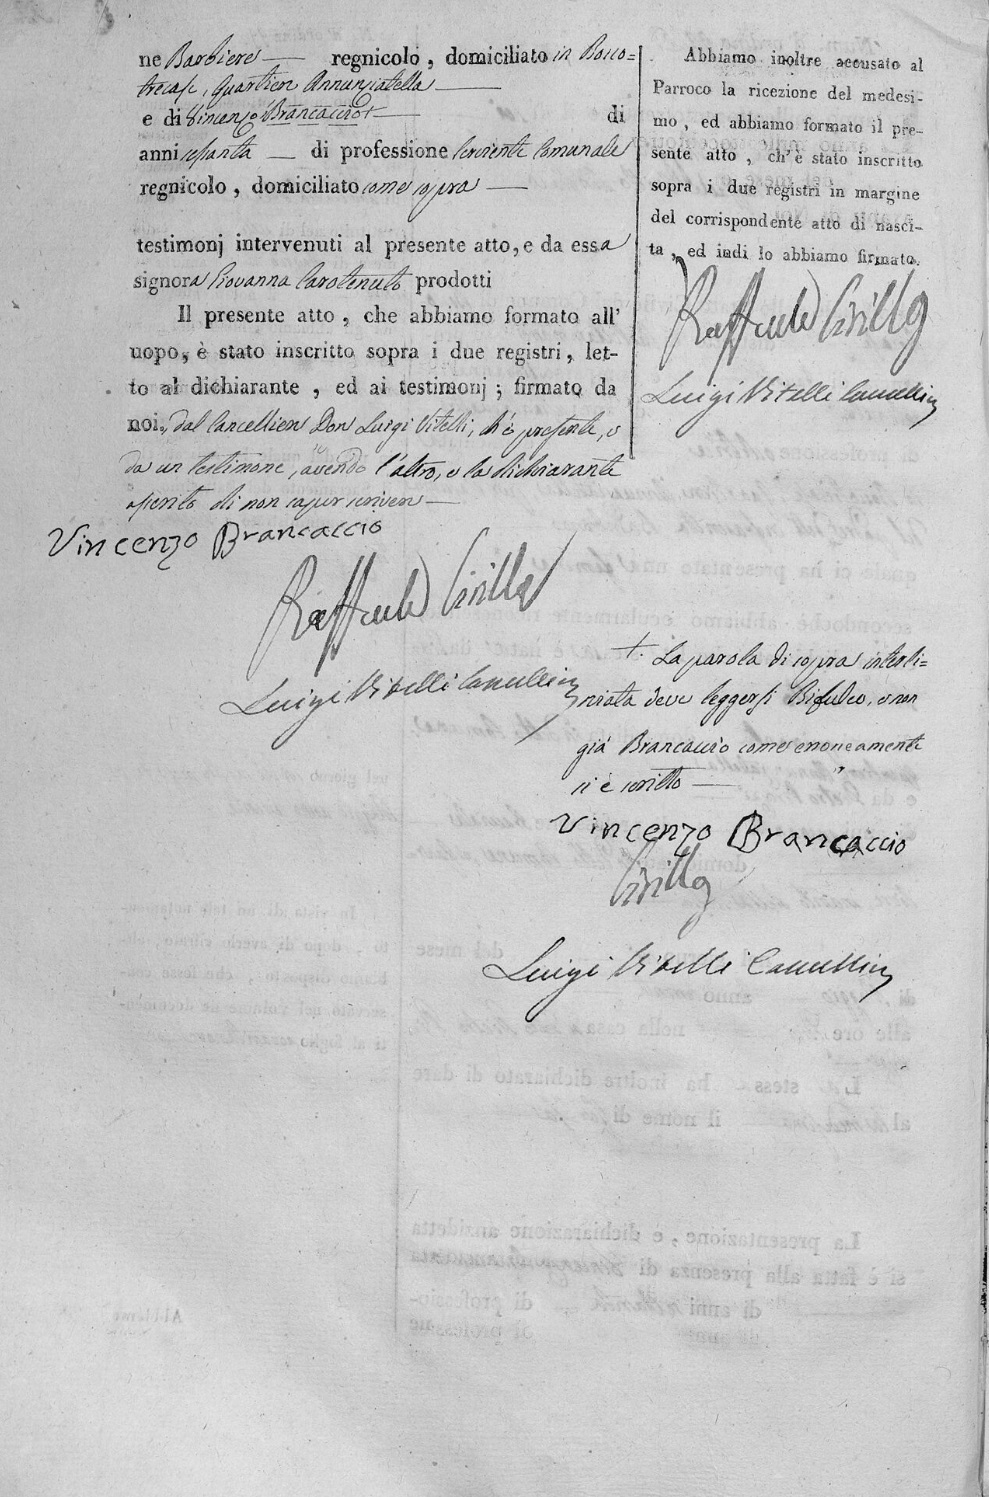 ne Barbiere — regnicolo, domiciliato in Bosco=
trecase, Quartiere Annunziatella —
e di Vincenzo Brancaccio + — di
anni sessanta — di professione serviente Comunale
regnicolo, domiciliato come sopra —
testimonj intervenuti al presente atto, e da essa
signora Giovanna Carotenuto prodotti
Il presente atto, che abbiamo formato all'
uopo, è stato inscritto sopra i due registri, let-
to al dichiarante, ed ai testimonj; firmato da
noi, dal Cancelliere Don Luigi Vitelli, ch'è presente, e
da un testimone, avendo l'altro, e la dichiarante
asserito di non saper scrivere —
Vincenzo Brancaccio
Raffaele Cirillo
Luigi Vitelli Cancelliere
Abbiamo inoltre accusato al
Parroco la ricezione del medesi-
mo, ed abbiamo formato il pre-
sente atto, ch'è stato inscritto
sopra i due registri in margine
del corrispondente atto di nasci-
ta, ed indi lo abbiamo firmato.
Raffaele Cirillo
Luigi Vitelli Cancelliere
+. La parola di sopra interli=
niata deve leggersi Bifulco, e non
già Brancaccio come erroneamente
si è scritto —
Vincenzo Brancaccio
Cirillo
Luigi Vitelli Cancelliere